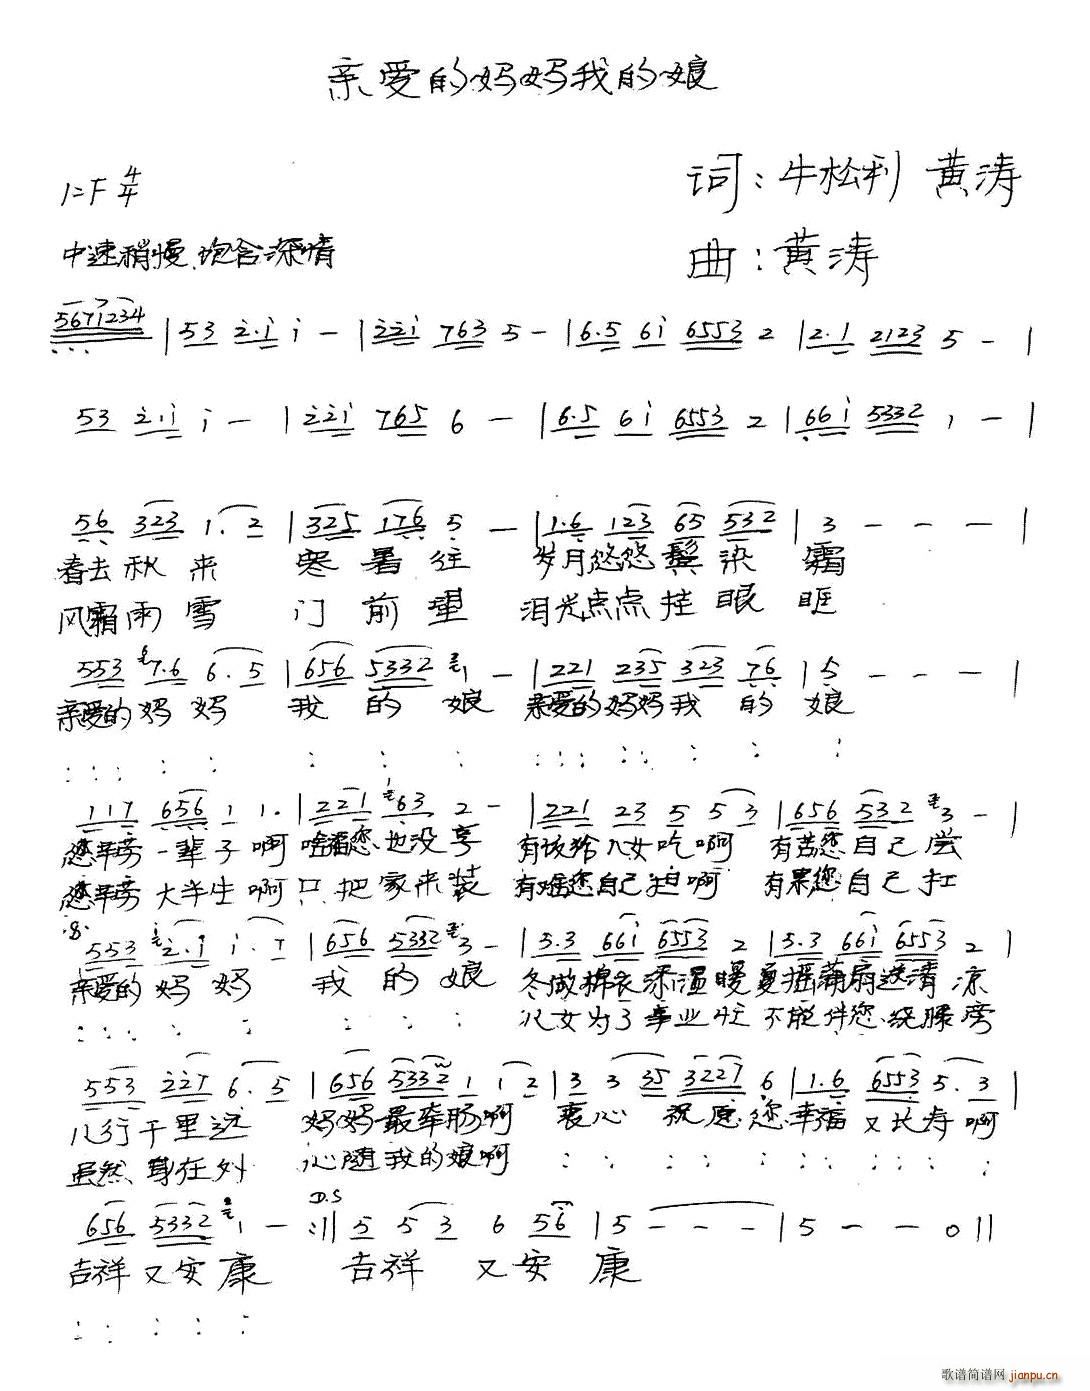 亲爱的妈妈我的娘
词：牛松利 黄涛
1=F 4/4
中速稍慢、饱含深情
曲：黄涛
5671234 |53 2.1 1 - |221 763 5 - |6.5 61 6553 2 |2.1 2123 5 - |
53 2.1 1 - |221 765 6 - |6.5 61 6553 2 |661 5332 1 - |
56 323 1.2 |325 176 5 - |1.6 123 65 532 |3 - - - |
春去秋来 寒暑往 岁月悠悠鬓染霜
风霜雨雪 门前望 泪光点点挂眼眶
553 7.6 6.5 |656 5332 1 - |221 235 323 76 |5 - - - |
亲爱的妈妈 我的娘 亲爱的妈妈我的娘
117 656 1 1. |221 63 2 - |221 23 5 5 3 |656 532 3 - |
您辛劳一辈子啊 啥福您也没享 有该给儿女吃啊 有苦您自己尝
您辛劳大半生啊 只把家来装 有啥您自己担啊 有累您自己扛
553 2.1 1.7 |656 5332 3 - |5.3 661 6553 2 |5.3 661 6553 2 |
亲爱的妈妈 我的娘 冬做棉衣添温暖 夏摇蒲扇送清凉
儿女为了事业忙 不能伴您绕膝旁
553 221 6.5 |656 5332 1 1 2 |3 3 35 3227 6 |1.6 6553 5.3 |
儿行千里远 妈妈最牵肠啊 衷心祝愿您幸福又长寿啊
虽然身在外 心随我的娘啊
D.S
656 5332 1 - :|| 5 5 3 6 56 1 |5 - - - |5 - - 0||
吉祥又安康 吉祥又安康
歌谱简谱网 jianpu.cn